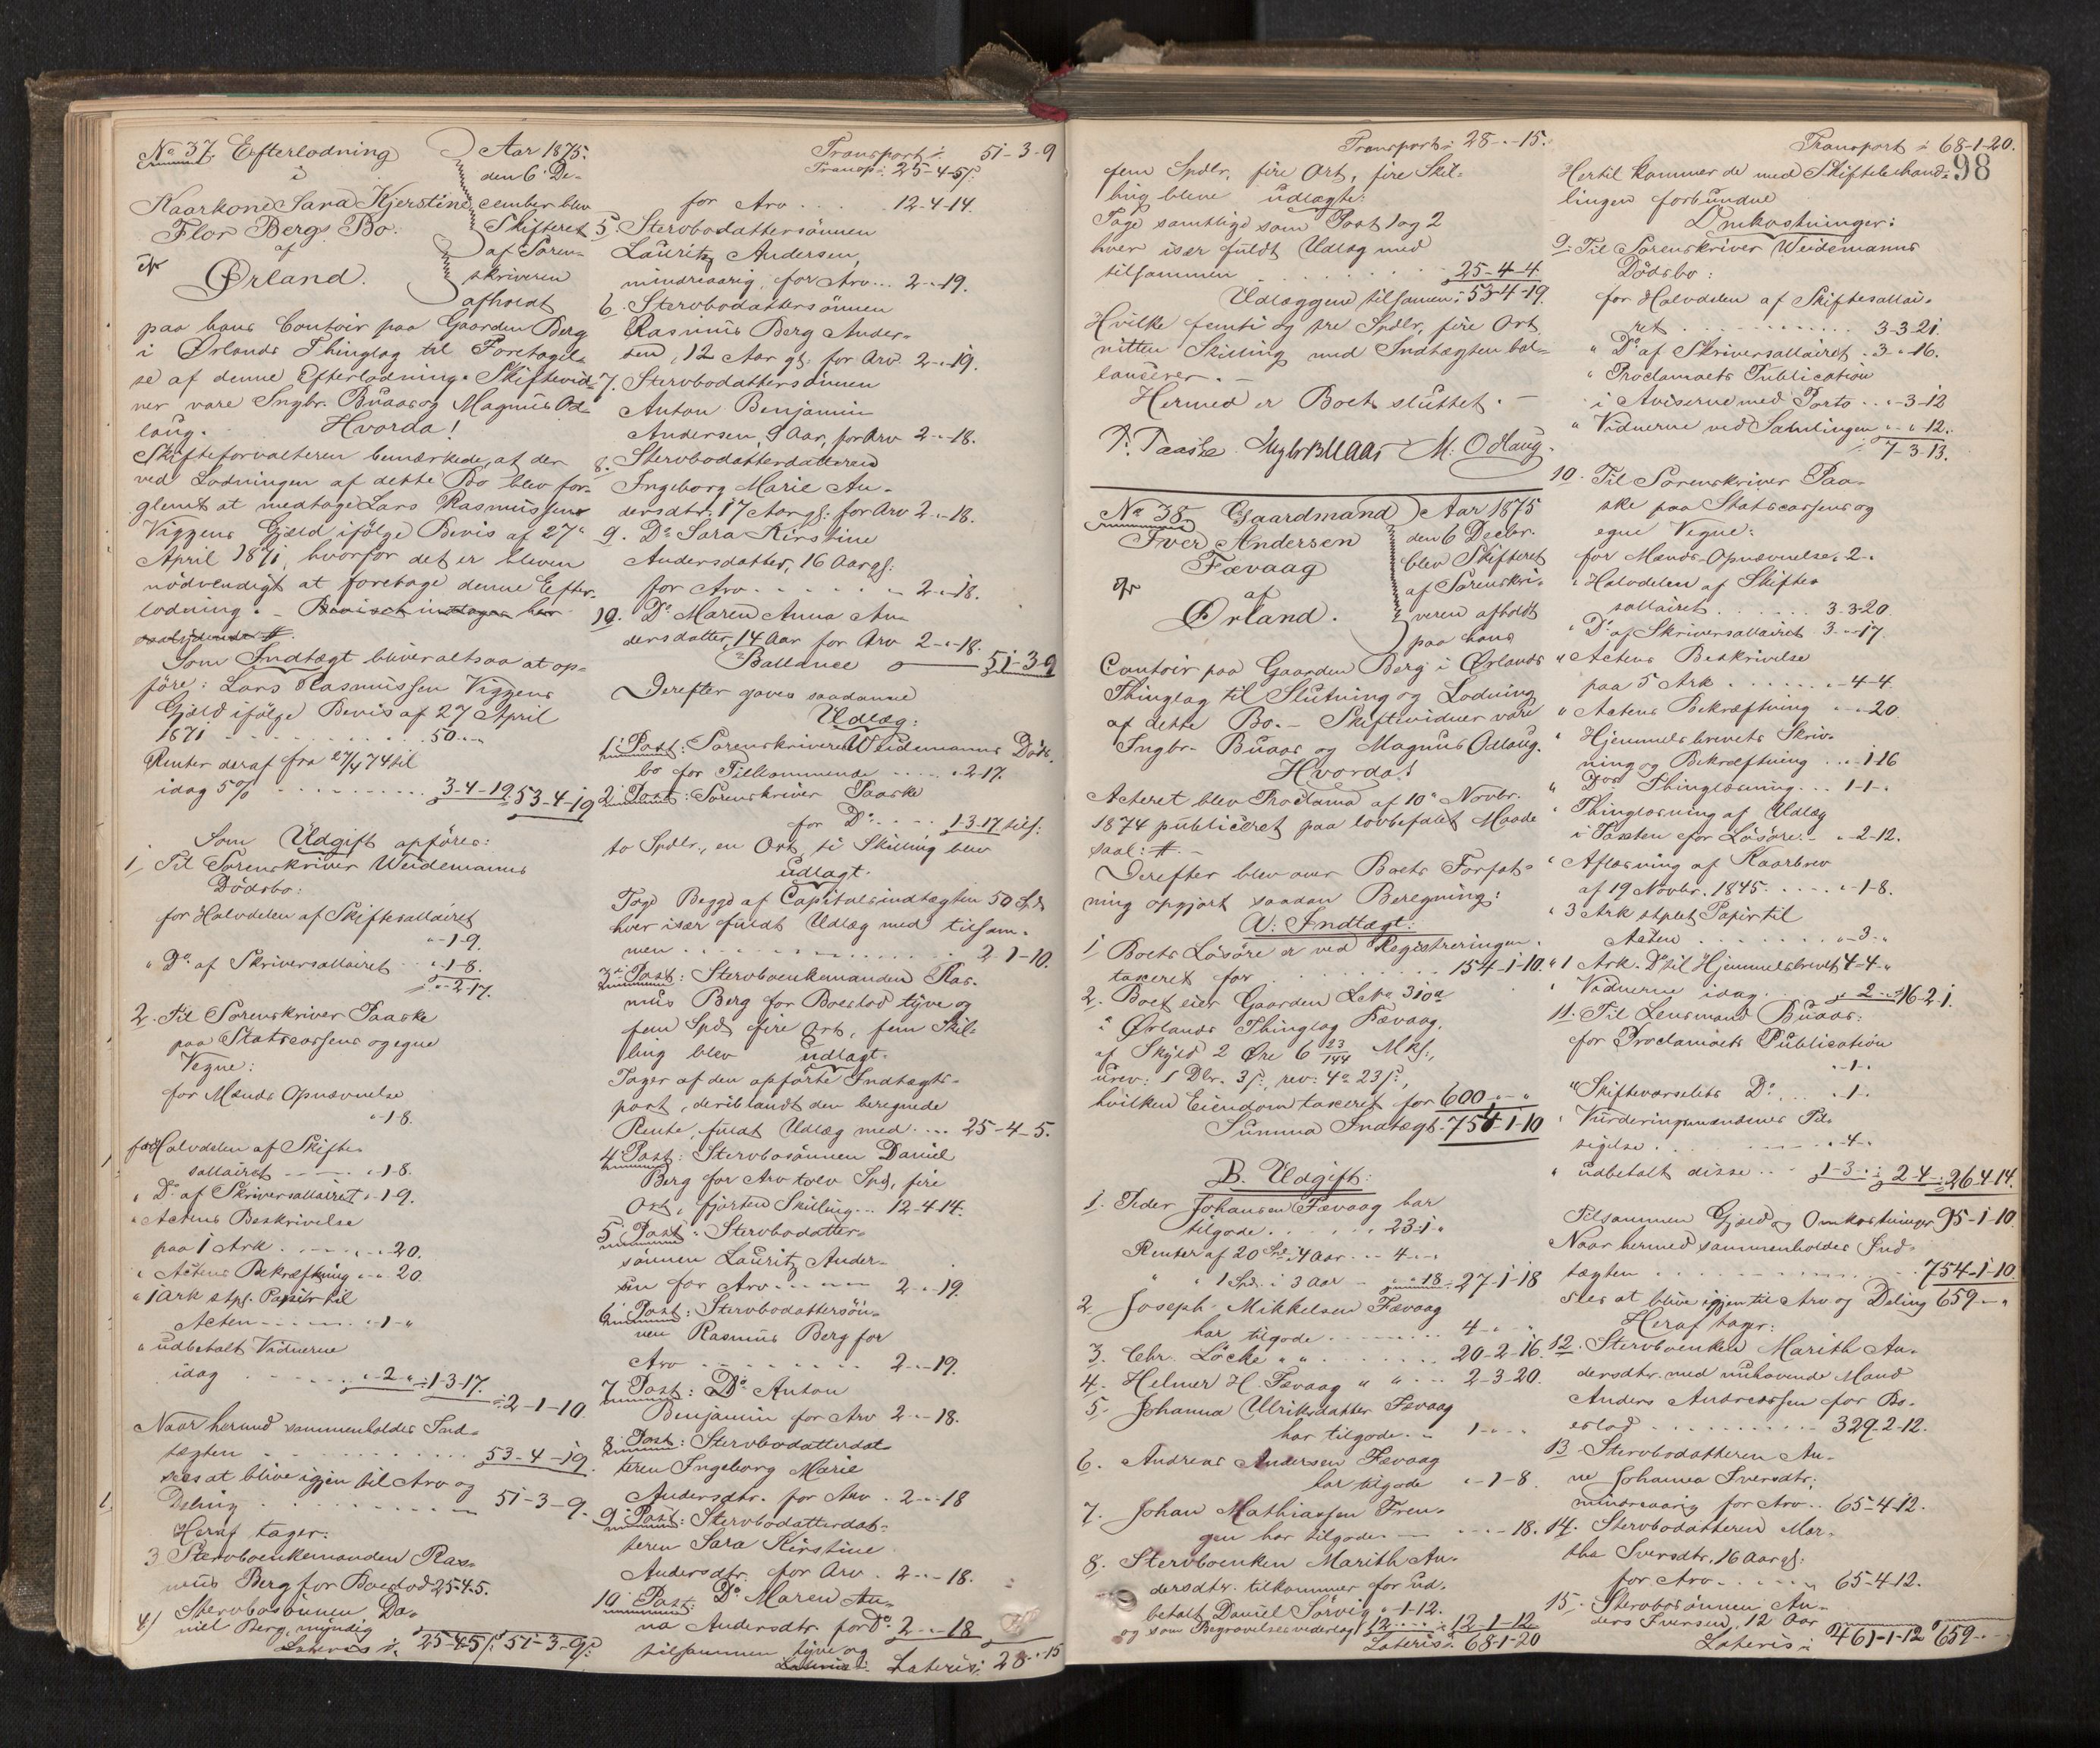 No 37. Efterlodning
i
Kaarkone Sara Kjerstine
Flor Bergs Bo.
af
Ørland.
Aar 1875.
den 6' De-
cember blev
Skifteret
af Soren-
skriveren
afholdt
paa hans Contoir paa Gaarden Berg
i Ørlands Thinglag til Foretagel-
se af denne Efterlodning. Skiftevid-
ner vare Ingbr. Buaas og Magnus Od-
laug.
Hvorda!
Skifteforvalteren bemærkede, at der
ved Lodningen af dette Bo blev for-
glemt at medtage Lars Rasmussens
Viggens Gjæld ifølge Bevis af 27'
April 1871, hvorfor det er bleven
nødvendigt at foretage denne Efter-
lodning. -
Som Indtægt bliver altsaa at op-
føre: Lars Rasmussen Viggens
Gjæld ifølge Bevis af 27 April
1871 50 " "
Renter deraf fra 27/4 74 til
idag 5% 3-4-19. 53-4-19
Som Udgift opføres:
1, Til Sorenskriver Weidemanns
Dødsbo:
for Halvdelen af Skiftesallairet
"-1-9.
" Do af Skriversallairet "-1-8.
"-2-17.
2. Til Sorenskriver Paaske
paa Statscassens og egne
Vegne:
for Mænds Opnævnelse
"-1-8.
for Halvdelen af Skifte-
sallairet "-1-8.
" Do af Skriversallairet "-1-9.
" Actens Beskrivelse
paa 1 Ark "-"-20.
" Actens Bekræftning "-"-20.
" 1 Ark stpl. Papir til
Acten "-1-"
" udbetalt Vidnerne
idag "-2-" 1-3-17.
2-1-10.
Naar hermed sammenholdes Ind-
tægten 53-4-19.
sees at blive igjen til Arv og
Deling 51-3-9.
Heraf tager:
3 Stervboenkemanden Ras-
mus Berg for Boeslod 25-4-5.
4) Stervbosønnen Da-
niel Berg, myndig
Lateris 25-4-5 51-3-9
Transport 51-3-9
Transp. 25-4-5
for Arv 12-4-14.
5. Stervbodattersønnen
Lauritz Andersen,
mindreaarig, for Arv 2-"-19.
6. Stervbodattersønnen
Rasmus Berg Ander-
sen, 12 Aar gl. for Arv 2-"-19.
7. Stervbodattersønnen
Anton Benjamin
Andersen, 9 Aar, for Arv 2-"-18.
8. Stervbodatterdatteren
Ingeborg Marie An-
dersdtr. 17 Aar gl. for Arv 2-"-18.
9. Do Sara Kirstine
Andersdatter, 16 Aar gl.
for Arv 2-"-18.
10. Do Maren Anna An-
dersdatter, 14 Aar for Arv 2-"-18.
Ballance 51-3-9
Derefter gaves saadanne
Udlæg:
1' Post: Sorenskriver Weidemanns Døds-
bo for Tilkommende "-2-17.
2' Post: Sorenskriver Paaske
for Do 1-3-17 tils:
to Spdlr., en Ort, ti Skilling blev
udlagt.
Tage Begge af Capitalsindtægten 50 Spd
hver især fuldt Udlæg med tilsam-
men 2-1-10.
3' Post: Stervboenkemanden Ras-
mus Berg for Boeslod tyve og
fem Spd, fire Ort, fem Skil-
ling blev udlagt.
Tager af den opførte Indtægts-
post, deriblandt den beregnede
Rente, fuldt Udlæg med 25-4-5.
4 Post: Stervbosønnen Daniel
Berg for Arv tolv Spd, fire
Ort, fjorten Skilling 12-4-14.
5 Post: Stervbodatter-
sønnen Lauritz Ander-
sen for Arv 2-"-19.
6' Post: Stervbodattersøn-
nen Rasmus Berg for
Arv 2-"-19.
7 Post: Do Anton
Benjamin for Arv 2-"-18.
8 Post: Stervbodatterdat-
teren Ingeborg Marie
Andersdtr. for Arv 2-"-18
9 Post: Stervbodatterdat-
teren Sara Kirstine
Andersdtr. for Arv 2-"-18.
10 Post: Do Maren An-
na Andersdtr. for Do 2-"-18
tilsammen tyve og
Lateris 28-"-15
Transport 28-"-15.
fem Spdlr, fire Ort, fire Skil-
ling bleve udlagte:
Tage samtlige som Post 1 og 2
hver især fuldt Udlæg med
tilsammen 25-4-4
Udlæggene tilsamen 53-4-19.
Hvilke femti og tre Spdlr, fire Ort
nitten Skilling med Indtægten bal-
lancerer. -
Hermed er Boet sluttet. -
P. Paaske Ingbr Buaas M. Odlaug.
No 38. Gaardmand
Iver Andersen
Fævaag
af
Ørland.
Aar 1875
den 6 Decbr.
blev Skifteret
af Sorenskri-
veren afholdt
paa hans
Contoir paa Gaarden Berg i Ørlands
Thinglag til Slutning og Lodning
af dette Bo. - Skiftevidner vare
Ingbr. Buaas og Magnus Odlaug.
Hvorda!
Acteret blev Proclama af 10' Novbr.
1874 publiceret paa lovbefalet Maade
saal: #. -
Derefter blev over Boets Forfat-
ning opgjort saadan Beregning:
A: Indtægt:
1 Boets Løsøre er ved Registreringen
taxeret for 154-1-10.
2. Boet eier Gaarden Lno 310a
i Ørlands Thinglag Fævaag,
af Skyld 2 Øre 6 23/144 Mkf.,
urev: 1 Dlr. 3 β:, rev: 4o 23 β:,
hvilken Eiendom taxeret for 600 " "
Summa Indtægt 754-1-10
B. Udgift:
1. Peder Johansen Fævaag har
tilgode 23-1-"
Renter af 20 Spd. i 4 Aar 4-"-"
" " 1 Spd. i 3 Aar "-"-18 27-1-18
2 Joseph Mikkelsen Fævaag
har tilgode 4-"-"
3. Chr. Løcke " " 20-2-16.
4. Helmer H. Fævaag " " 2-3-20.
5. Johanna Ulriksdatter Fævaag
har tilgode 1-"-"
6. Andreas Andersen Fævaag
har tilgode "-1-8
7. Johan Mathiassen Fren-
gen har tilgode "-"-18.
8. Stervboenken Marith An-
dersdtr. tilkommer for ud-
betalt Daniel Sørvig "-1-12.
og som Begravelsesvederlag 12 12-1-12
Lateris 68-1-20
Transport 68-1-20.
98
Hertil kommer de med Skiftebehand-
lingen forbundne
Omkostninger:
9. Til Sorenskriver Weidemanns
Dødsbo:
for Halvdelen af Skiftesallai-
ret 3-3-21.
" Do af Skriversallairet 3-"-16.
" Proclamaets Publication
i Aviserne med Porto "-3-12
" Vidnerne ved Samlingen "-"-12.
7-3-13.
10. Til Sorenskriver Paa-
ske paa Statscassens og
egne Vegne:
for Mænds Opnævnelse "2-"
" Halvdelen af Skifte-
sallairet 3-3-20
" Do af Skriversallairet 3-"-17.
" Actens Beskrivelse
paa 5 Ark "-4-4.
" Actens Bekræftning "-"-20
" Hjemmelsbrevets Skriv-
ning og Bekræftning "-1-16
" Dos Thinglæsning 1-1-"
" Thinglæsning af Udlæg
i Panten for Løsøre "-2-12.
" Aflæsning af Kaarbrev
af 19 Novbr. 1845 "-1-8.
" 3 Ark stplet Papir til
Acten "-3-"
" 1 Ark Do til Hjemmelsbrevet 4-4-"
" Vidnerne idag "-2-" 16-2-1.
11. Til Lensmand Buaas:
for Proclamaets Publication
"-1-"
" Skiftevarselets Do "-1-"
" Vurderingsmændenes Til-
sigelse "-4-"
" udbetalt disse 1-3-" 2-4-" 26-4-14.
Tilsammen Gjæld og Omkostninger 95-1-10.
Naar hermed sammenholdes Ind-
tægten 754-1-10.
sees at blive igjen til Arv og Deling 659-"-"
Heraf tager:
12. Stervboenken Marith An-
dersdtr. med nuhavende Mand
Anders Andreassen for Bo-
eslod 329-2-12.
13. Stervbodatteren An-
ne Johanna Iversdtr.
mindreaarig for Arv 65-4-12.
14. Stervbodatteren Mar-
tha Iversdtr. 16 Aar gl:
for Arv 65-4-12.
15. Stervbosønnen An-
ders Iversen, 12 Aar
Lateris 461-1-12 659-"-"